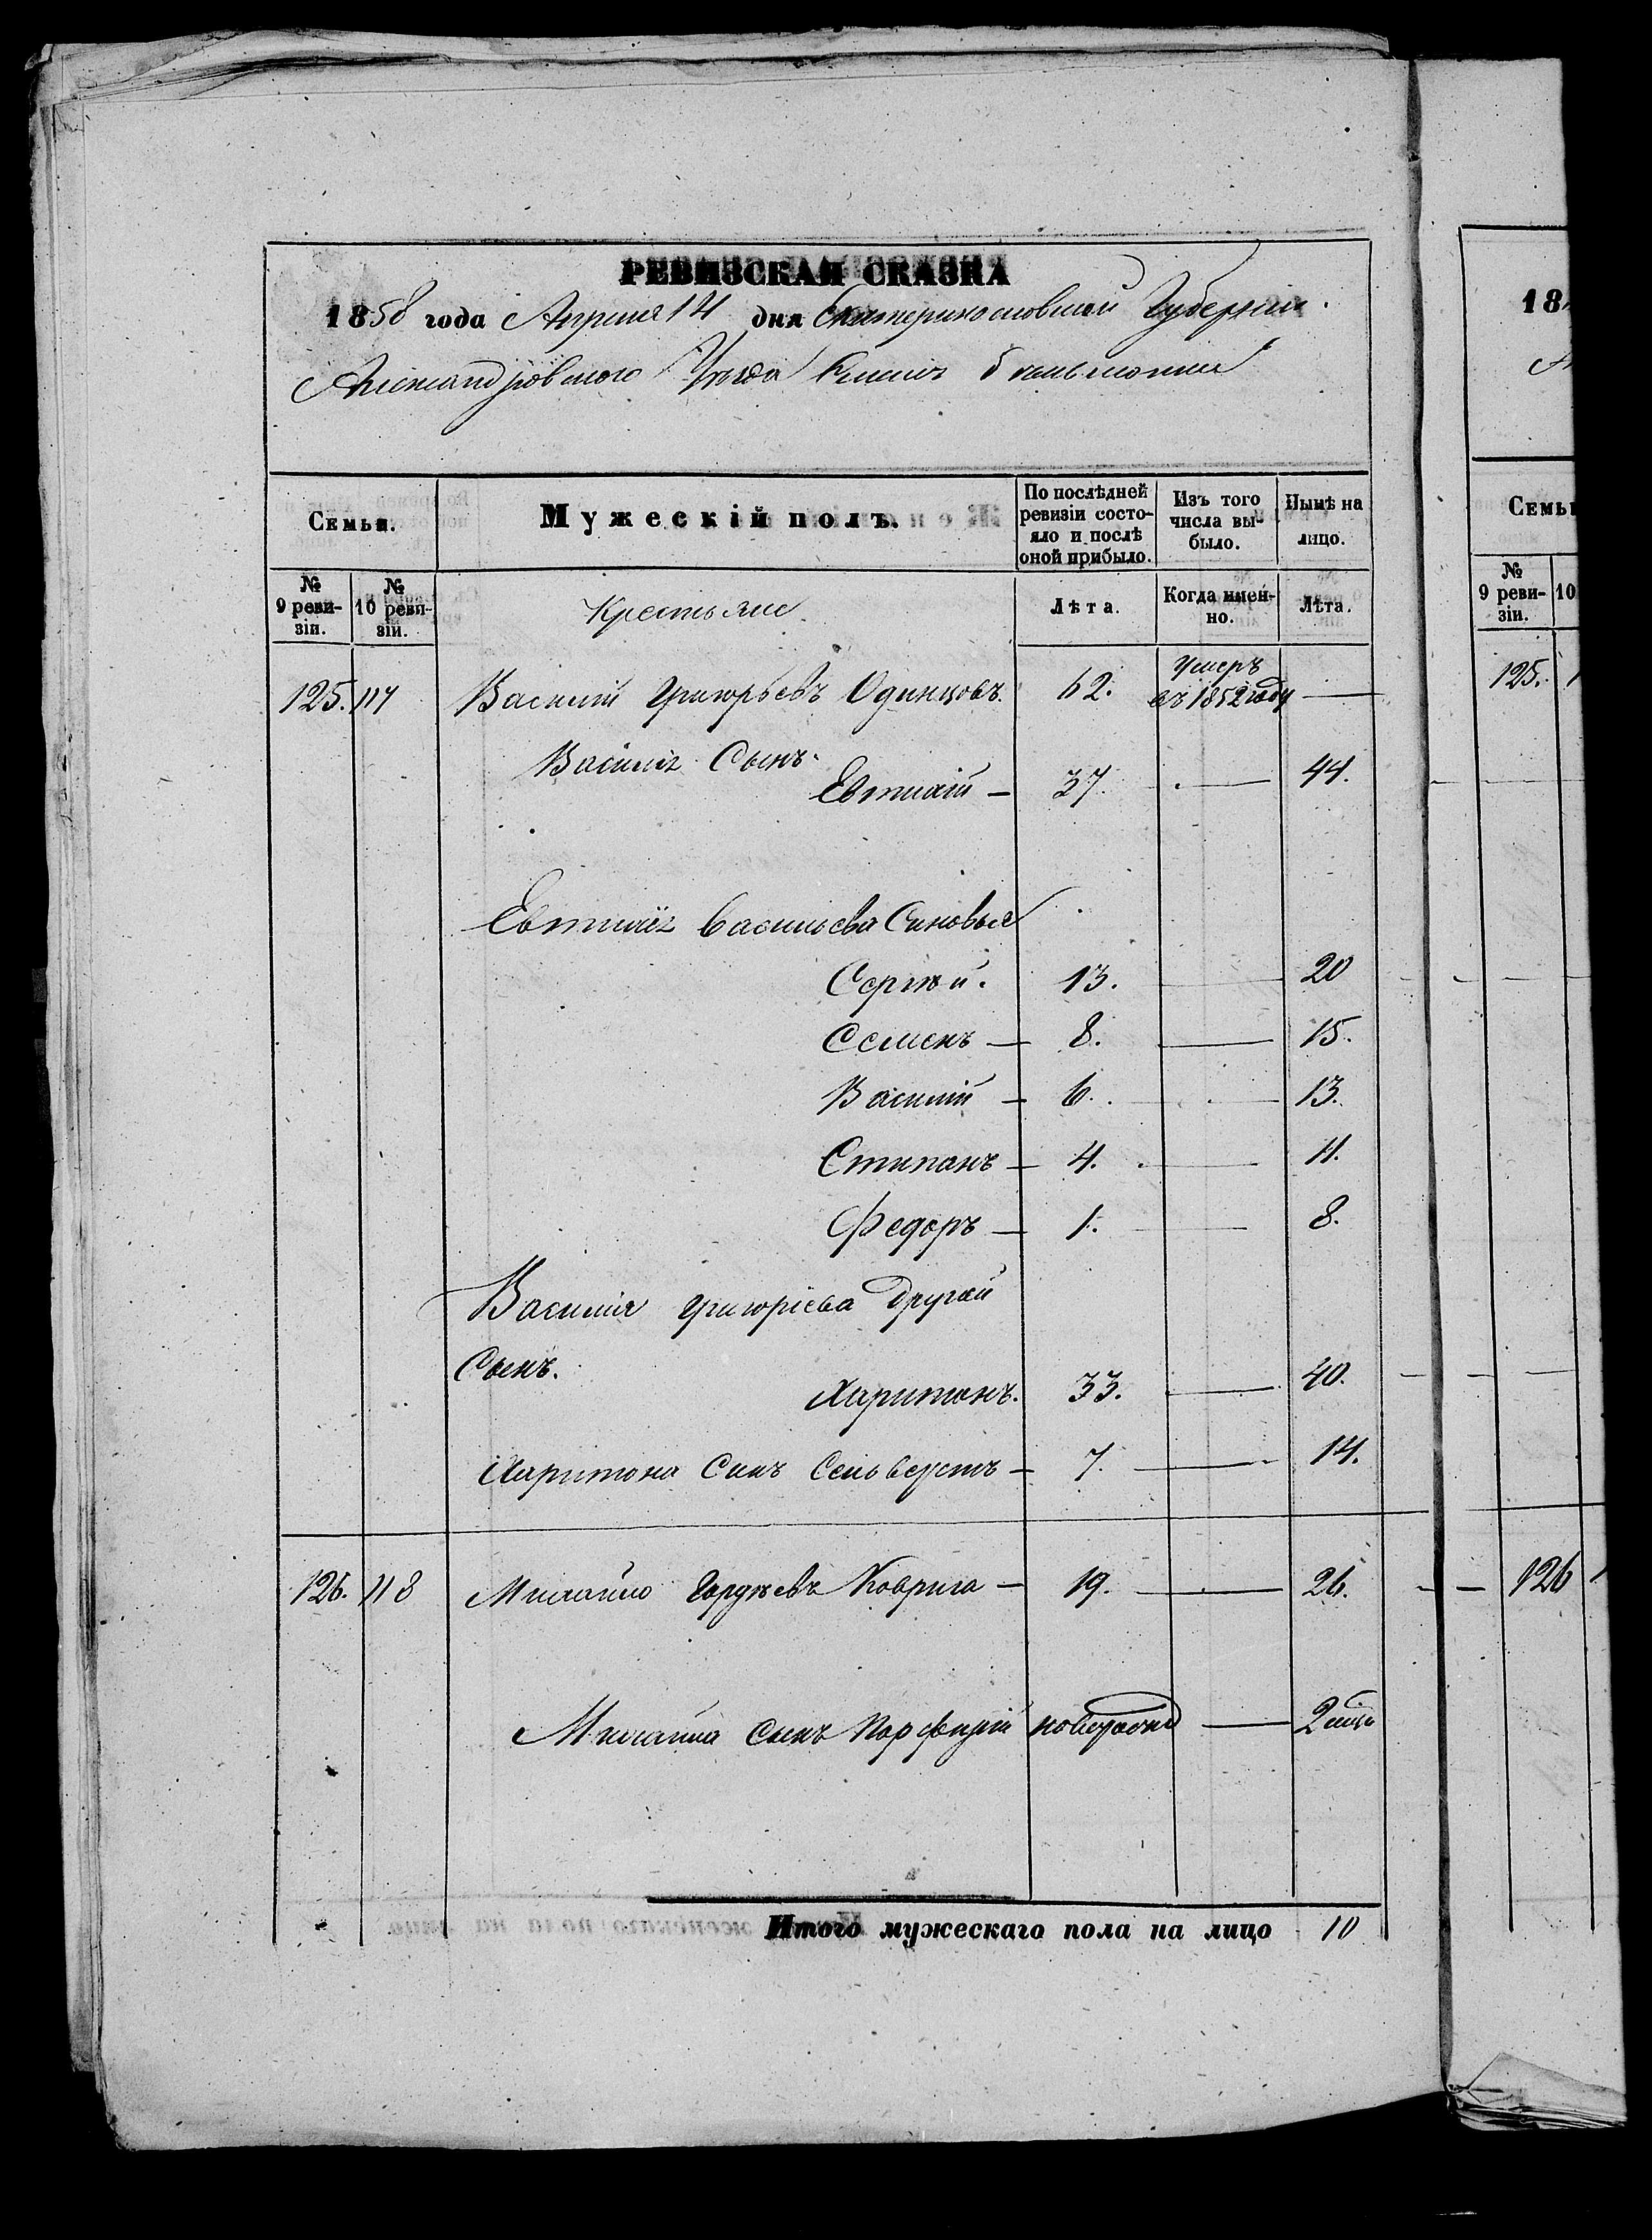 РЕВИЗСКАЯ СКАЗКА
1858 года Апреля 14 дня Екатеринославской Губернии
Александровского Уезда
Семьи. Мужескій полъ. По послѣдней ревизіи состояло и послѣ оной прибыло. Изъ того числа выбыло. Нынѣ на лицо.
№ 9 ревизіи. № 10 ревизіи. Крестьяне Лѣта. Когда именно. Лѣта.
125. 117 Василий Григорьевъ Одинцовъ. 62. умеръ въ 1852 году —
Василия Сынъ
Евтихий — 37. — 44.
Евтихия Васильева Синовья
Сергѣй. 13. — 20
Семенъ — 8. — 15.
Василий — 6. — 13.
Стипанъ — 4. — 11.
Федоръ — 1. — 8.
Василия Григорiева Другой
Сынъ.
Харитонъ. 33. — 40.
Харитона Синъ Сельверстъ — 7. — 14.
126. 118 Михайло Гордѣевъ Коврига — 19. — 26.
Михайла Сынъ Порфирий новорожд — 2
Итого мужескаго пола на лицо 10
18
Семьи
№ 9 ревизіи. 10
125.
126